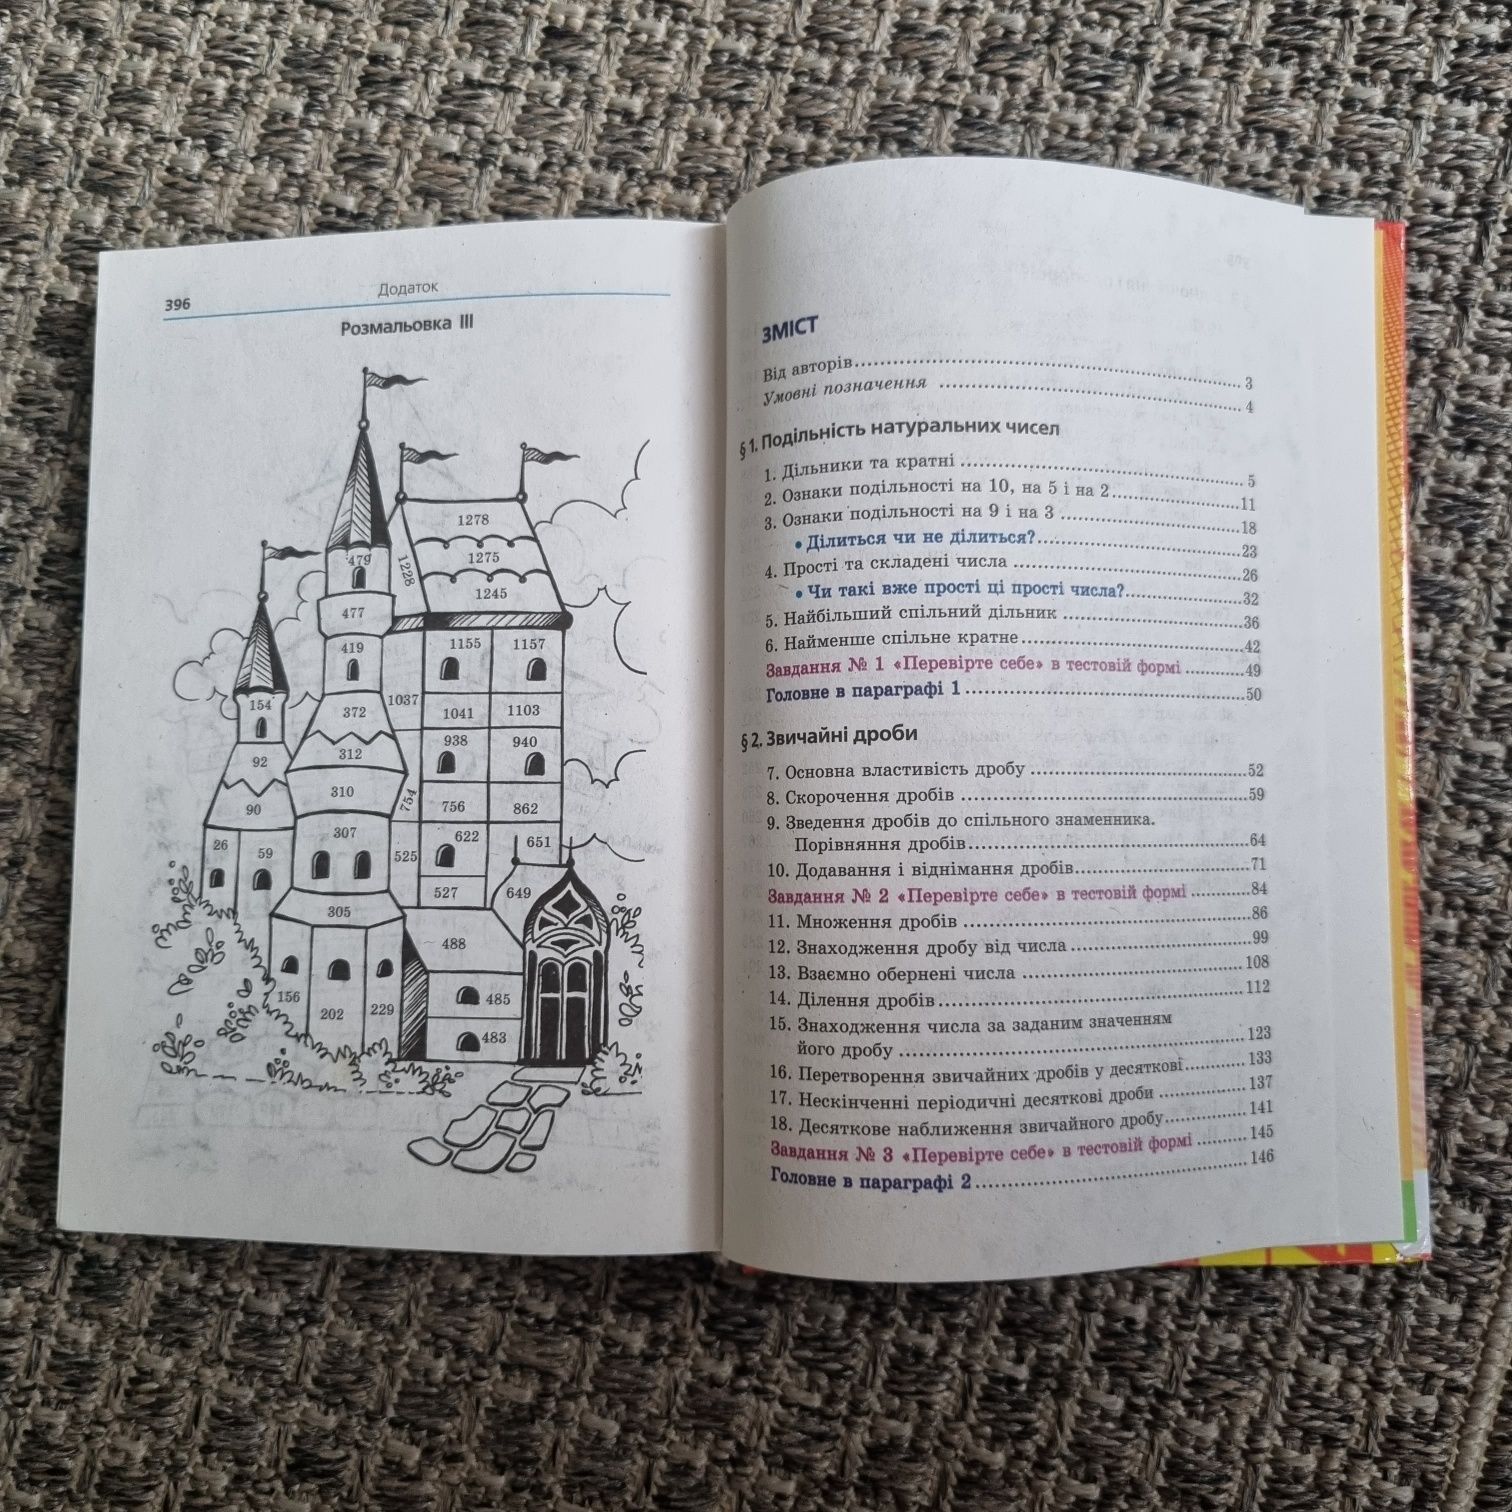 396
Додаток
Розмальовка III
1278
479
1228
1275
1245
477
419
1155
1157
154
372
1037
1041
1103
92
312
938
940
90
310
754
756
862
26
59
307
525
622
651
527
649
305
488
156
202
229
485
483
ЗМІСТ
Від авторів 3
Умовні позначення 4
§ 1. Подільність натуральних чисел
1. Дільники та кратні 5
2. Ознаки подільності на 10, на 5 і на 2 11
3. Ознаки подільності на 9 і на 3 18
• Ділиться чи не ділиться? 23
4. Прості та складені числа 26
• Чи такі вже прості ці прості числа? 32
5. Найбільший спільний дільник 36
6. Найменше спільне кратне 42
Завдання № 1 «Перевірте себе» в тестовій формі 49
Головне в параграфі 1 50
§ 2. Звичайні дроби
7. Основна властивість дробу 52
8. Скорочення дробів 59
9. Зведення дробів до спільного знаменника.
Порівняння дробів 64
10. Додавання і віднімання дробів 71
Завдання № 2 «Перевірте себе» в тестовій формі 84
11. Множення дробів 86
12. Знаходження дробу від числа 99
13. Взаємно обернені числа 108
14. Ділення дробів 112
15. Знаходження числа за заданим значенням
його дробу 123
16. Перетворення звичайних дробів у десяткові 133
17. Нескінченні періодичні десяткові дроби 137
18. Десяткове наближення звичайного дробу 141
Завдання № 3 «Перевірте себе» в тестовій формі 145
Головне в параграфі 2 146